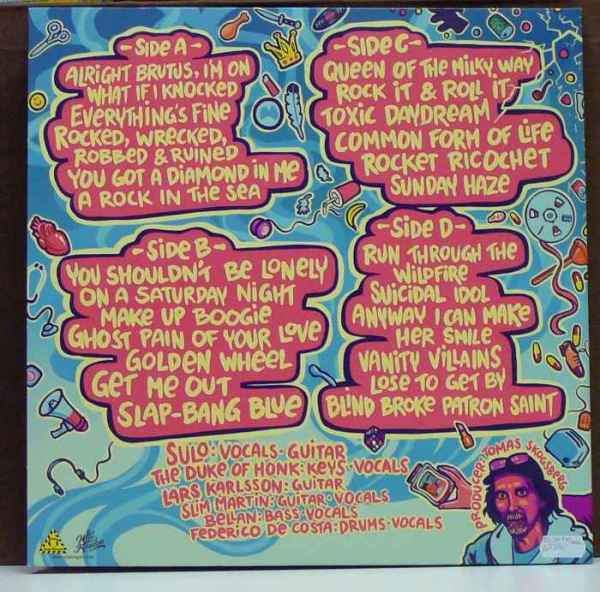 -SIDE A-
ALRIGHT BRUTUS, I'M ON
WHAT IF I KNOCKED
EVERYTHING'S FINE
ROCKED, WRECKED,
ROBBED & RUINED
YOU GOT A DIAMOND IN ME
A ROCK IN THE SEA
-SIDE B-
YOU SHOULDN'T BE LONELY
ON A SATURDAY NIGHT
MAKE UP BOOGIE
GHOST PAIN OF YOUR LOVE
GOLDEN WHEEL
GET ME OUT
SLAP-BANG BLUE
-SIDE C-
QUEEN OF THE MILKY WAY
ROCK IT & ROLL IT
TOXIC DAYDREAM
COMMON FORM OF LIFE
ROCKET RICOCHET
SUNDAY HAZE
-SIDE D-
RUN THROUGH THE
WILDFIRE
SUICIDAL IDOL
ANYWAY I CAN MAKE
HER SMILE
VANITY VILLAINS
LOSE TO GET BY
BLIND BROKE PATRON SAINT
SULO: VOCALS·GUITAR
THE DUKE OF HONK: KEYS·VOCALS
LARS KARLSSON: GUITAR
SLIM MARTIN: GUITAR·VOCALS
BELLAN: BASS·VOCALS
FEDERICO DE COSTA: DRUMS·VOCALS
PRODUCER: TOMAS SKOGSBERG